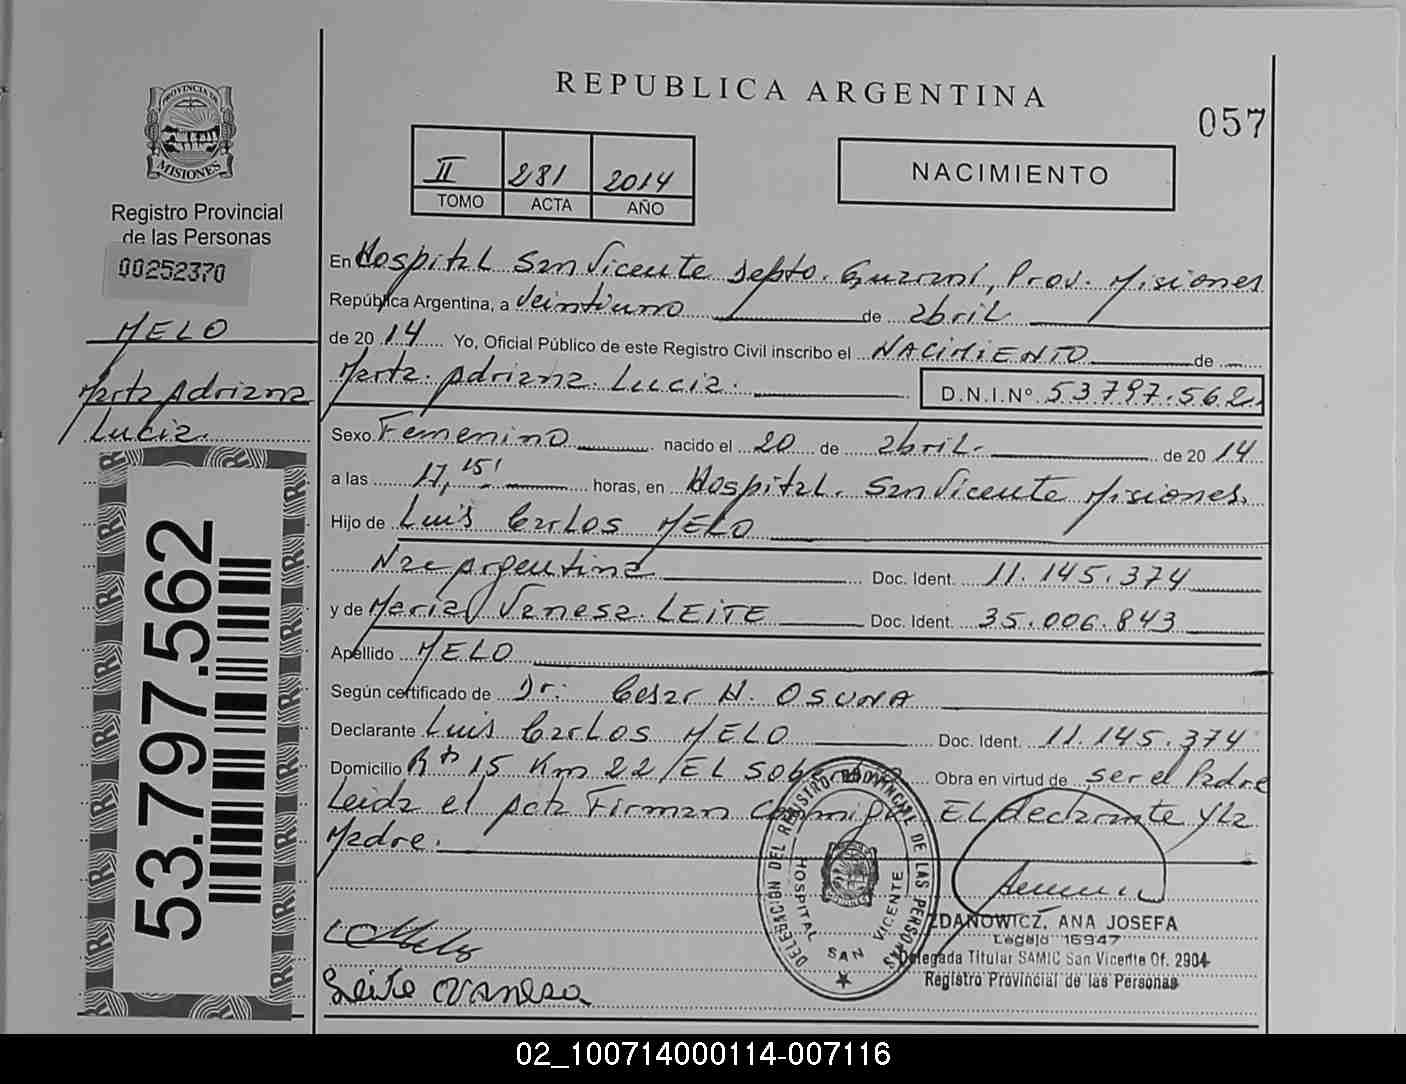 REPUBLICA ARGENTINA
057
PROVINCIA DE MISIONES
Registro Provincial
de las Personas
00252370
MELO
Marta Adriana
Lucia
53.797.562
II 281 2014
TOMO ACTA AÑO
NACIMIENTO
En Hospital San Vicente Depto. Guaraní, Prov. Misiones
República Argentina, a veintiuno de abril
de 2014 Yo, Oficial Público de este Registro Civil inscribo el NACIMIENTO de
Marta Adriana Lucia. D.N.I.Nº 53.797.562
Sexo Femenino nacido el 20 de abril de 2014
a las 17,15' horas, en Hospital San Vicente Misiones.
Hijo de Luis Carlos MELO
Nac Argentina Doc. Ident. 11.145.374
y de Maria Vanesa LEITE Doc. Ident. 35.006.843
Apellido MELO
Según certificado de Dr. Cesar H. OSUNA
Declarante Luis Carlos MELO Doc. Ident. 11.145.374
Domicilio Rta 15 Km 22/EL Soberbio Obra en virtud de ser el Padre
Leida el acta Firman conmigo EL declarante y la
Madre.
DELEGACION DEL REGISTRO PROVINCIAL DE LAS PERSONAS
HOSPITAL SAN VICENTE
ZDANOWICZ, ANA JOSEFA
Legajo 16947
Delegada Titular SAMIC San Vicente Of. 2904
Registro Provincial de las Personas
Leite Vanesa
02_100714000114-007116